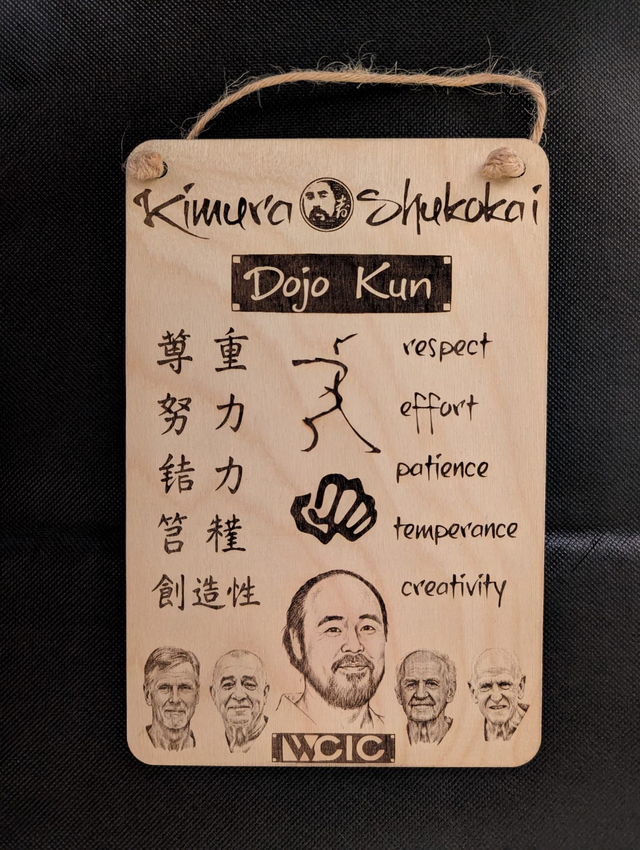 Kimura Shukokai
Dojo Kun
尊重 respect
努力 effort
patience
temperance
創造性 creativity
WCIC